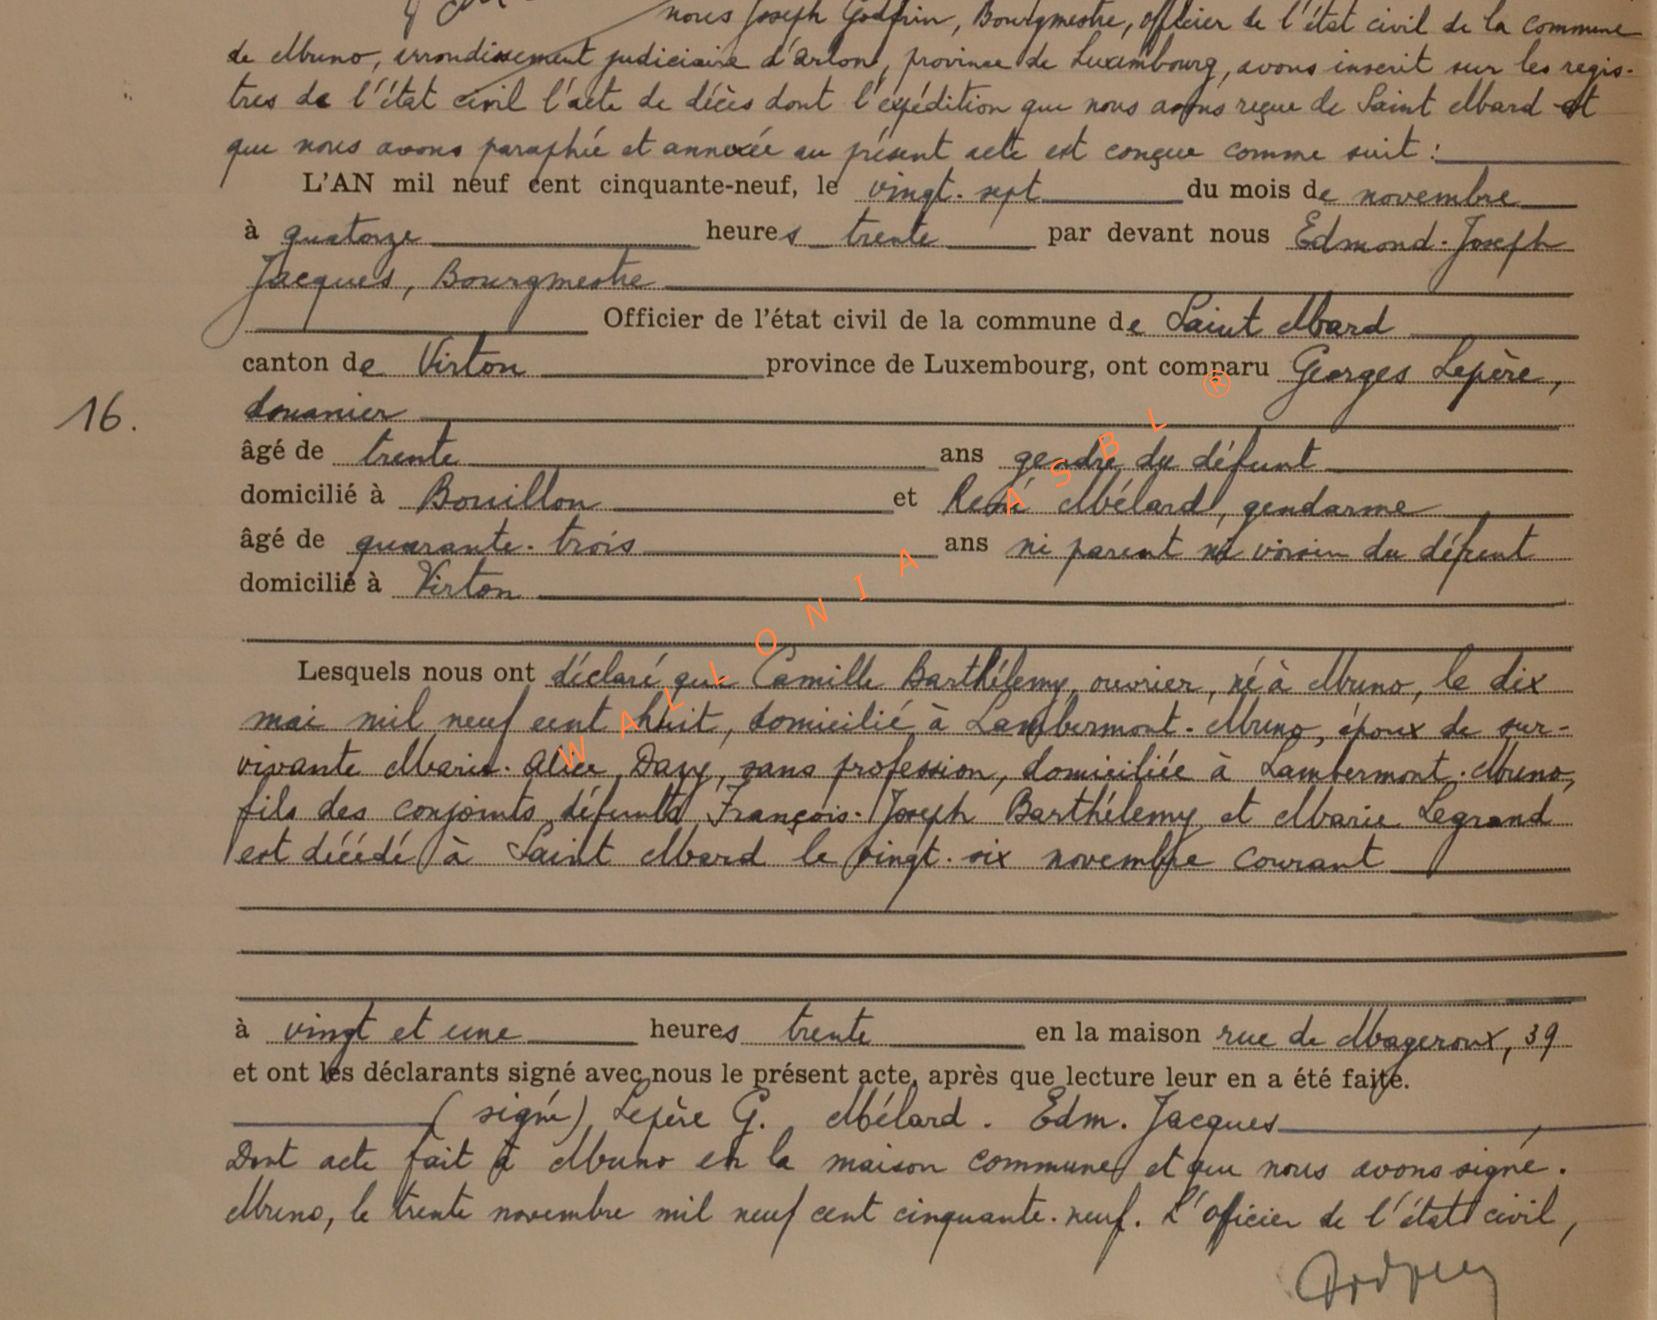 nous Joseph Godfrin, Bourgmestre, officier de l'état civil de la commune
de Muno, arrondissement judiciaire d'Arlon, province de Luxembourg, avons inscrit sur les regis-
tres de l'état civil l'acte de décès dont l'expédition que nous avons reçue de Saint Mard et
que nous avons paraphée et annexée au présent acte est conçue comme suit :
L'AN mil neuf cent cinquante-neuf, le vingt-sept du mois de novembre
à quatorze heures trente par devant nous Edmond-Joseph
Jacques, Bourgmestre
Officier de l'état civil de la commune de Saint Mard
canton de Virton province de Luxembourg, ont comparu Georges Lepère,
16. douanier
âgé de trente ans gendre du défunt
domicilié à Bouillon et René Mélard, gendarme
âgé de quarante-trois ans ni parent ni voisin du défunt
domicilié à Virton
Lesquels nous ont déclaré que Camille Barthélemy, ouvrier, né à Muno, le dix
mai mil neuf cent huit, domicilié à Lambermont-Muno, époux de sur-
vivante Marie-Alice Davy, sans profession, domiciliée à Lambermont-Muno,
fils des conjoints défunts François-Joseph Barthélemy et Marie Legrand
est décédé à Saint Mard le vingt-six novembre courant
à vingt et une heures trente en la maison rue de Mageroux, 39
et ont les déclarants signé avec nous le présent acte, après que lecture leur en a été faite.
(signé) Lepère G. Mélard. Edm. Jacques
Dont acte fait à Muno en la maison commune et que nous avons signé.
Muno, le trente novembre mil neuf cent cinquante-neuf. L'officier de l'état civil,
WALLONIA ASBL ®